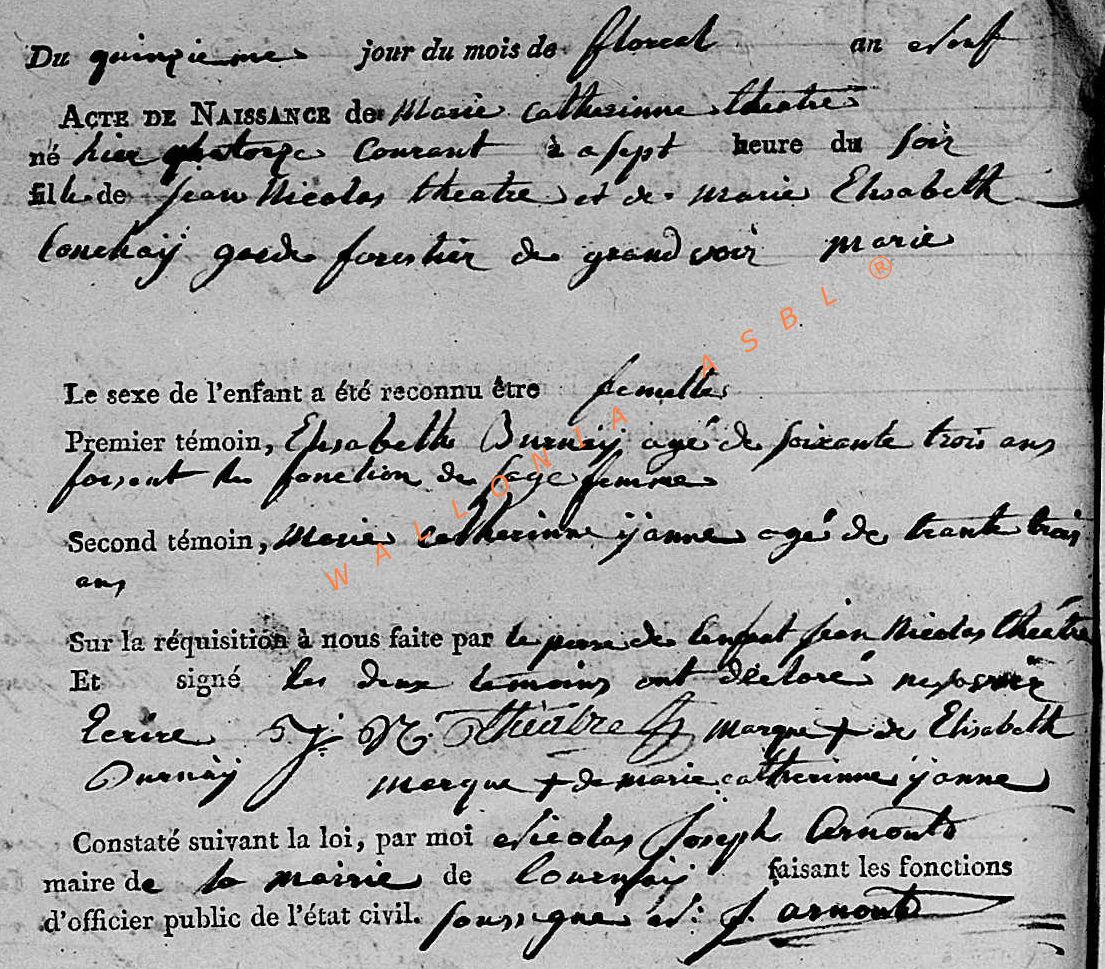 Du quinzieme jour du mois de floreal an neuf
ACTE DE NAISSANCE de Marie Catherinne theatre
né hier quatorze Courant à sept heure du soir
fille de jean Nicolas theatre et de marie Elisabeth
Lonchaÿ garde forestier de grand voir marie
Le sexe de l'enfant a été reconnu être femelle
Premier témoin, Elisabeth Burnaÿ agé de soixante trois ans
foisent les fonction de sage femme
Second témoin, Marie catherinne ÿanne agé de trante trois
ans
Sur la réquisition à nous faite par le pere de lenfant jean Nicolas théatre
Et signé les deux temoins ont déclaré ne savoir
Ecrire J. N. Théâtre marque + de Elisabeth
Burnaÿ marque + de marie catherinne ÿanne
Constaté suivant la loi, par moi Nicolas Joseph Arnould
maire de la mairie de Tournaÿ faisant les fonctions
d'officier public de l'état civil. soussigné N: J. arnould
WALLONIA ASBL ®